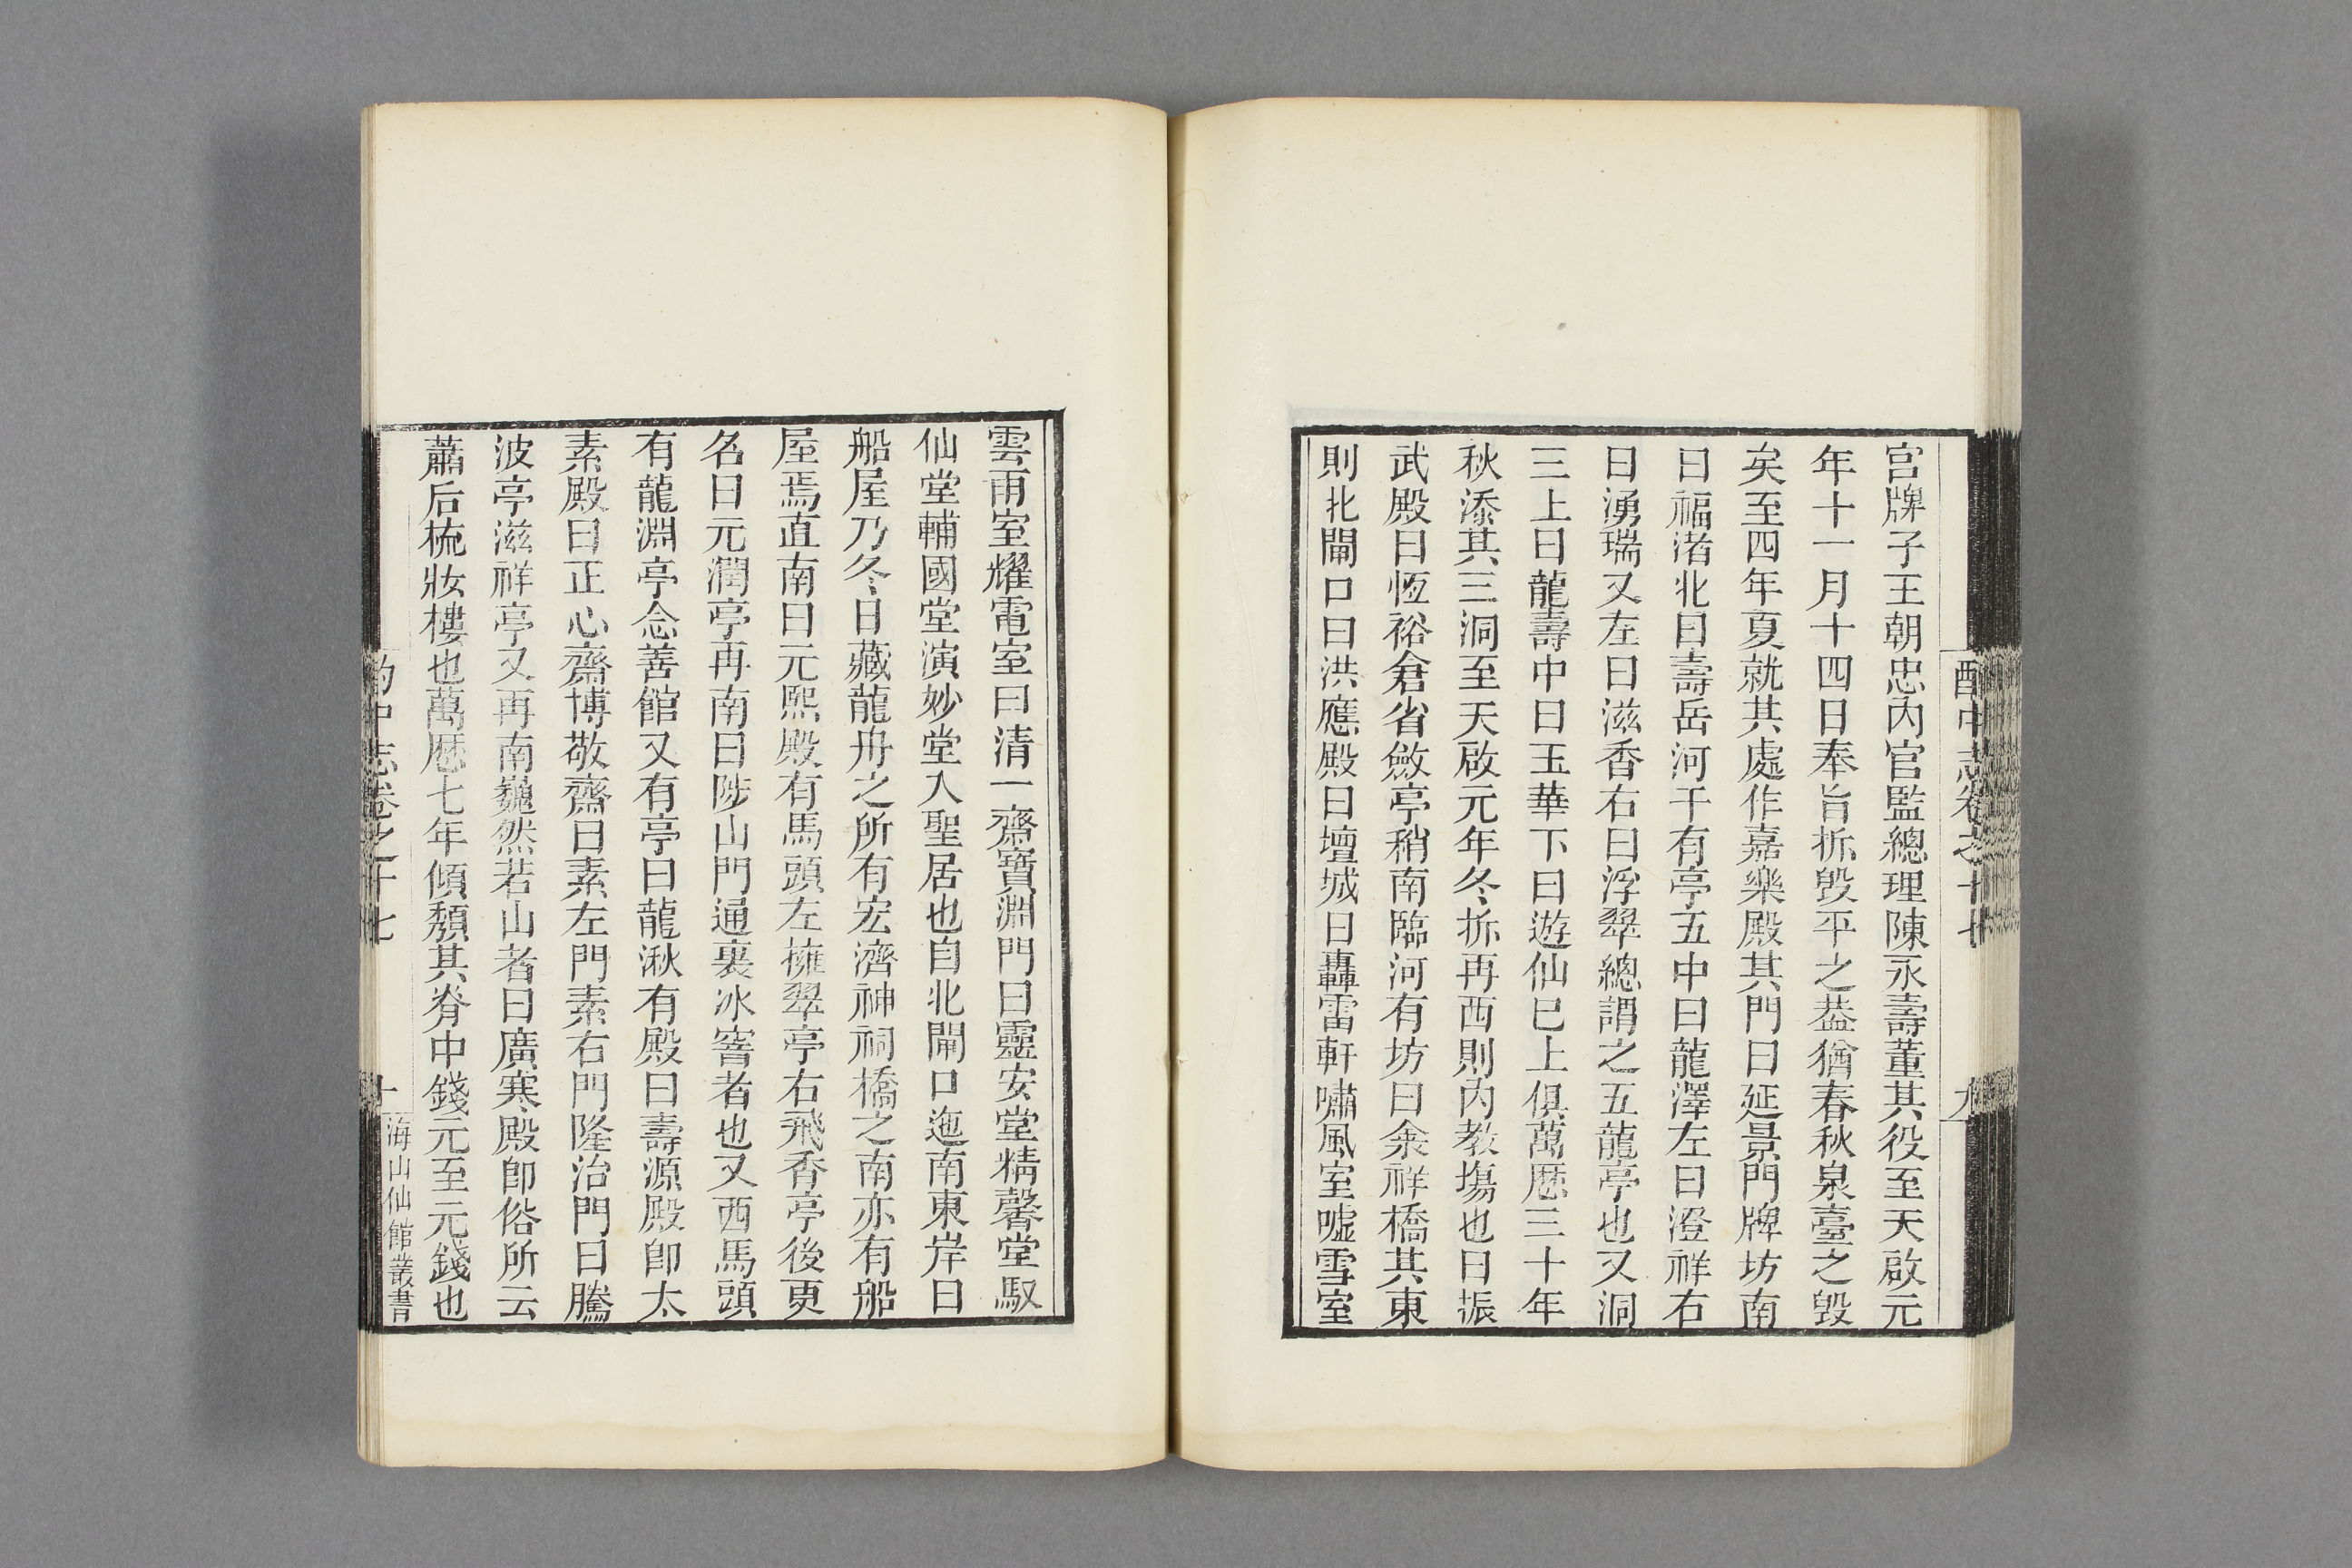 宫牌子王朝忠內官監總理陳永壽董其役至天啟元
年十一月十四日奉旨拆毀平之葢猶春秋泉臺之毀
矣至四年夏就其處作嘉樂殿其門曰延景門牌坊南
曰福渚北曰壽岳河干有亭五中曰龍澤左曰澄祥右
曰湧瑞又左曰滋香右曰浮翠總謂之五龍亭也又洞
三上曰龍壽中曰玉華下曰遊仙巳上俱萬厯三十年
秋添其三洞至天啟元年冬拆再西則內教塲也曰振
武殿曰恆裕倉省斂亭稍南臨河有坊曰氽祥橋其東
則北閘口曰洪應殿曰壇城曰轟雷軒嘯風室噓雪室
雲雨室耀電室曰清一齋寶淵門曰靈安堂精馨堂馭
仙堂輔國堂演妙堂入聖居也自北閘口迤南東岸曰
船屋乃冬日藏龍舟之所有宏濟神祠橋之南亦有船
屋焉直南曰元熙殿有馬頭左擁翠亭右飛香亭後更
名曰元潤亭再南曰陟山門通裏冰窖者也又西馬頭
有龍淵亭念善館又有亭曰龍湫有殿曰壽源殿卽太
素殿曰正心齋博敬齋曰素左門素右門隆治門曰騰
波亭滋祥亭又再南巍然若山者曰廣寒殿卽俗所云
蕭后梳妝樓也萬厯七年傾頹其脊中錢元至元錢也
酌中志卷之十七
十
海山仙館叢書